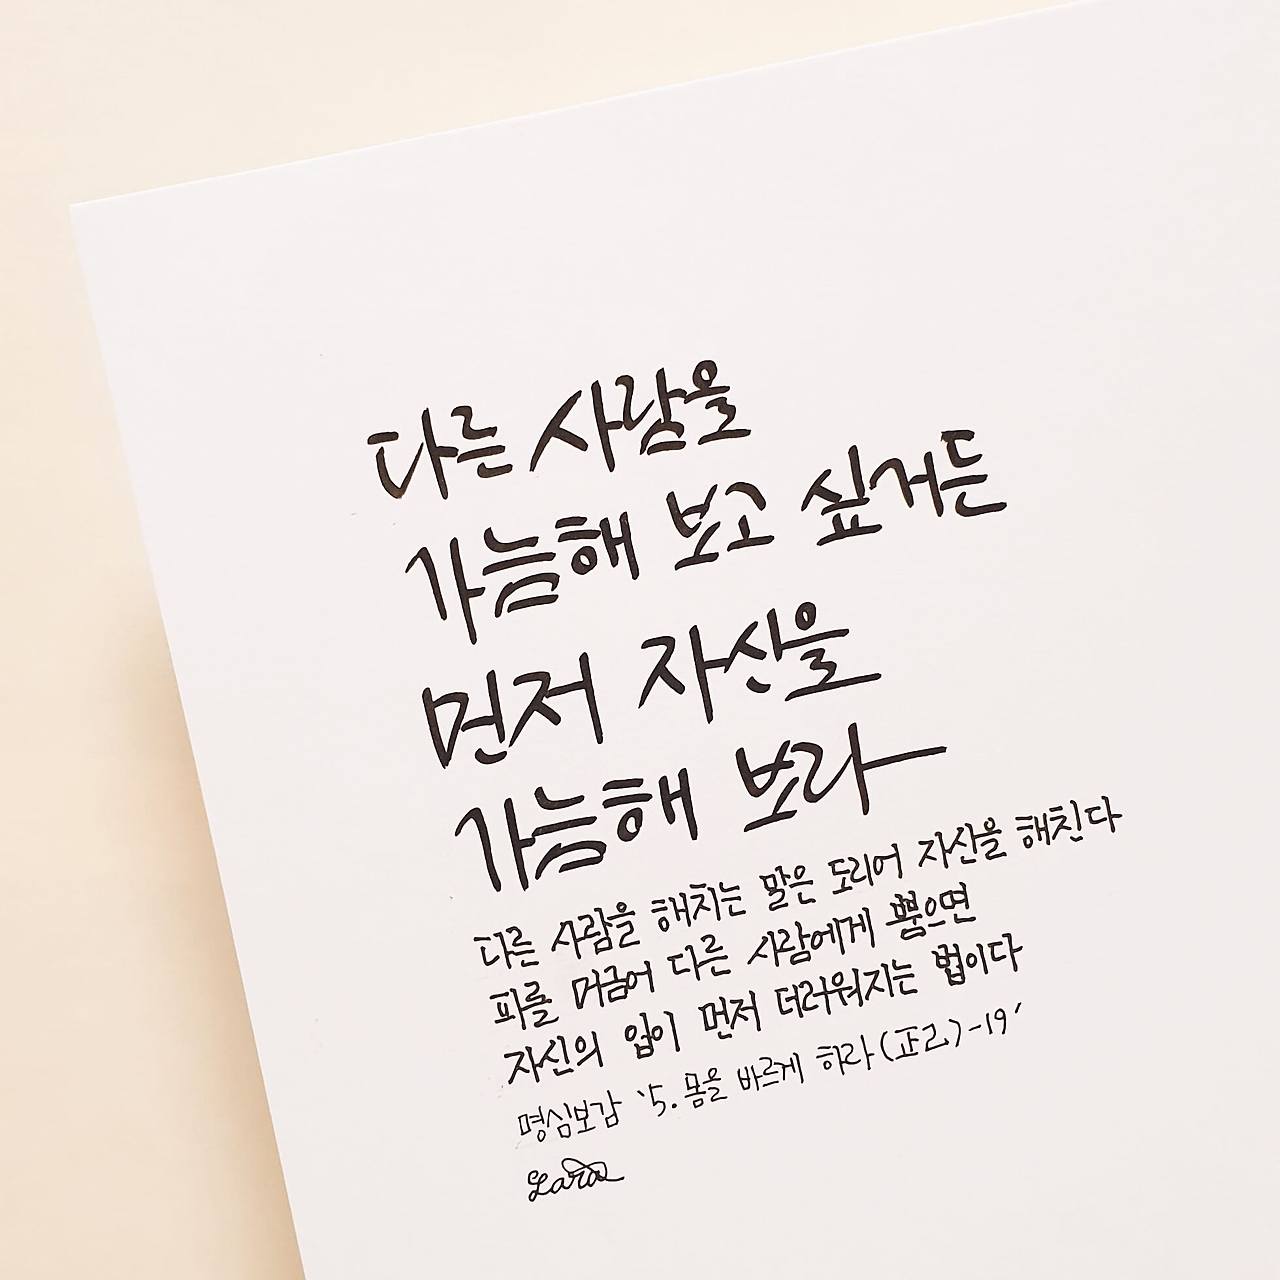 다른 사람을
가늠해 보고 싶거든
먼저 자신을
가늠해 보라
다른 사람을 해치는 말은 도리어 자신을 해친다
피를 머금어 다른 사람에게 뿜으면
자신의 입이 먼저 더러워지는 법이다
명심보감 '5. 몸을 바르게 하라(正己)-19'
Lara